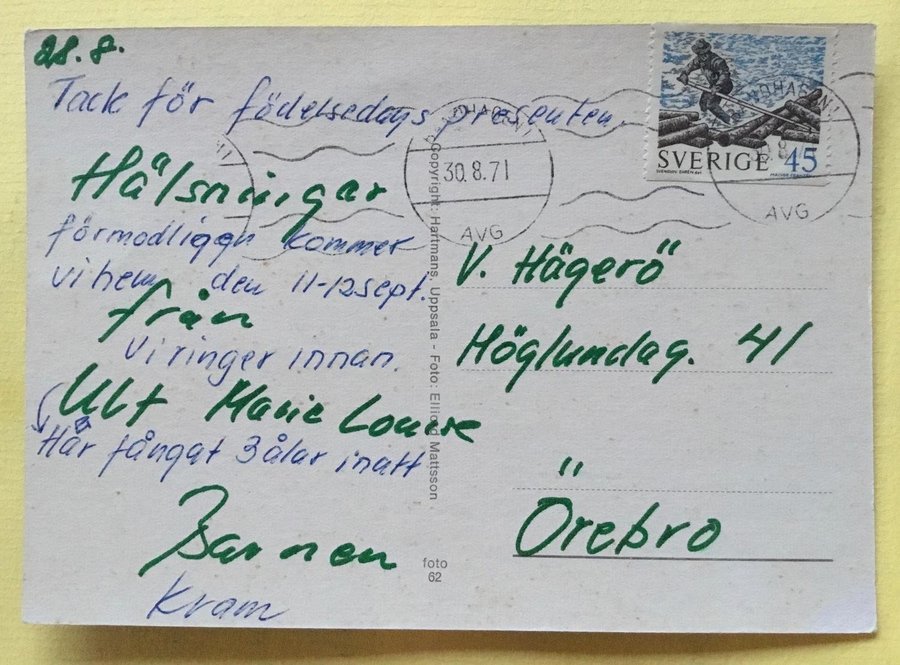 28.8.
Tack för födelsedags presenten.
Hälsningar
förmodligen kommer
vi hem den 11-12 sept.
från
vi ringer innan.
Ulf Marie Louise
Har fångat 3 ålar inatt
Barnen
Kram
Copyright: Hartmans, Uppsala - Foto: Elliord Mattsson
foto
62
30.8.71
AVG
SVERIGE 45
AVG
V. Hägerö
Höglundag. 41
Örebro